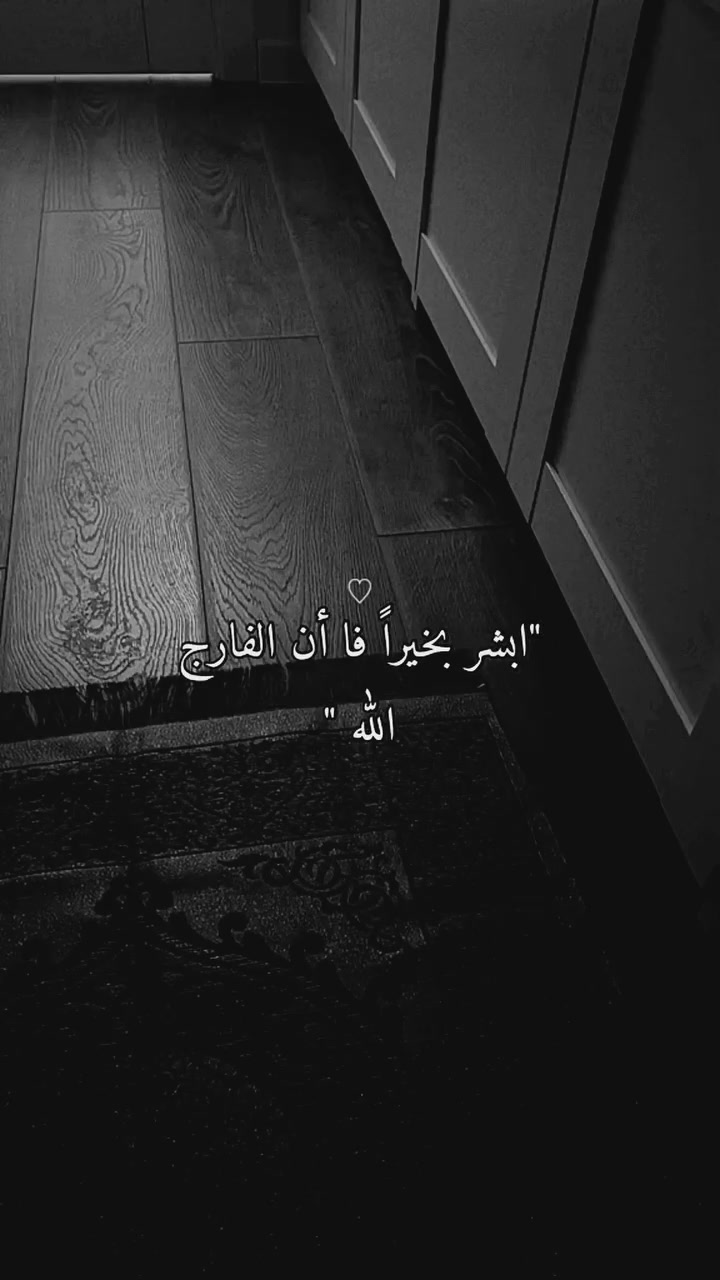 ♡
"ابشر بخيراً فا أن الفارج
الله "